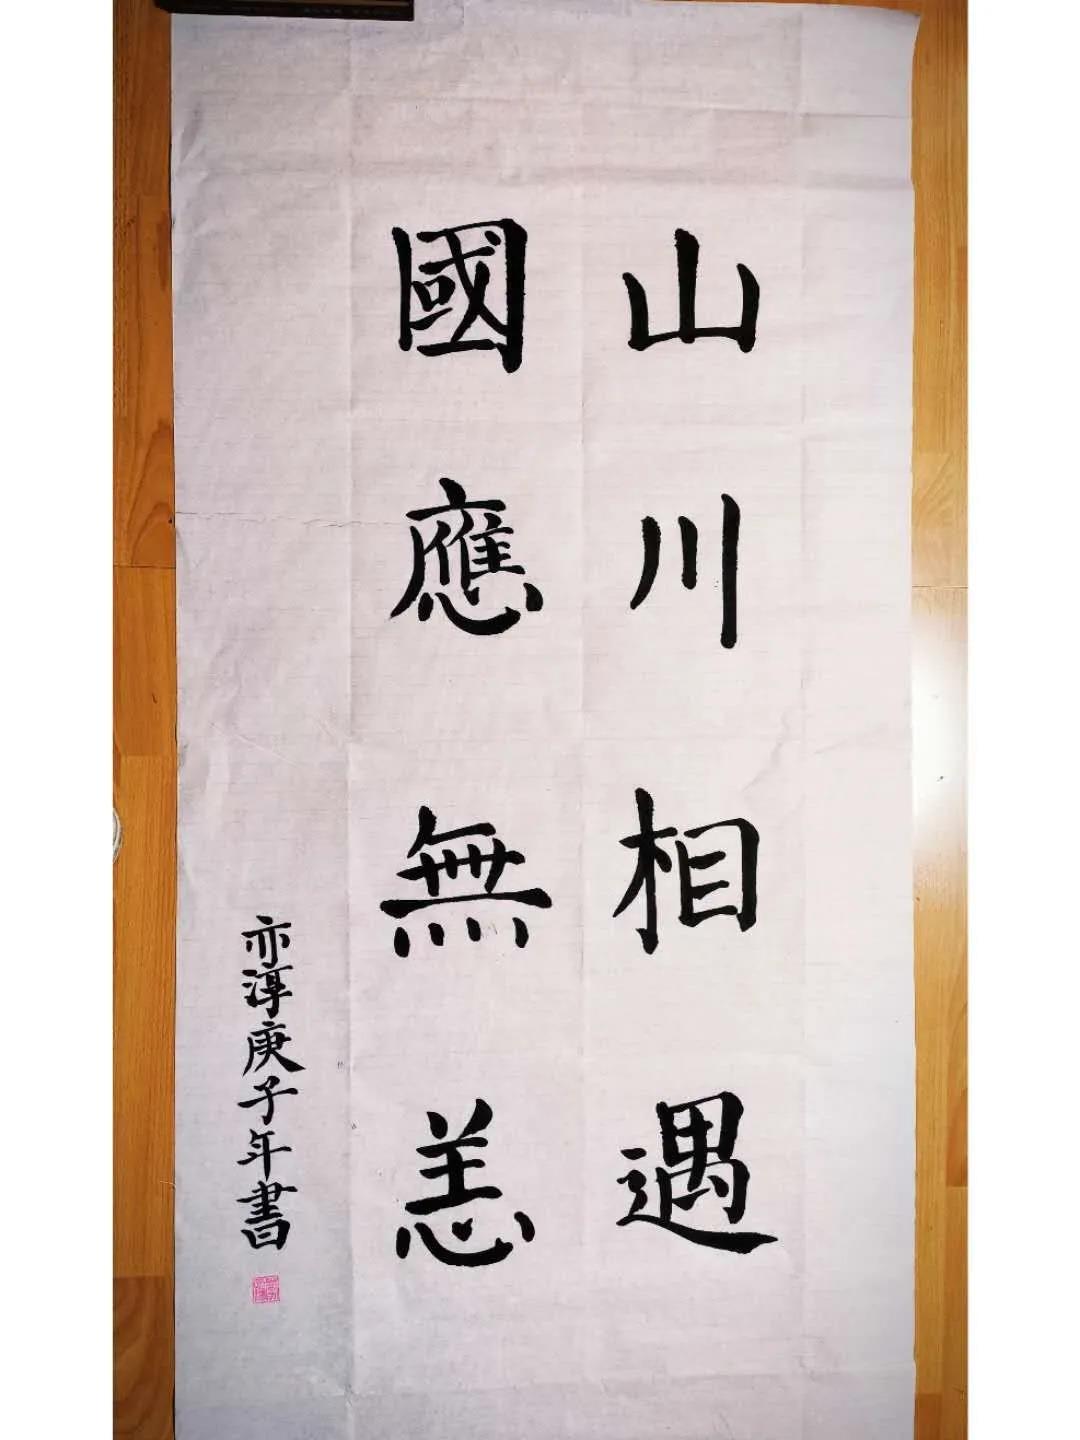 山川相遇
國應無恙
亦淳庚子年書